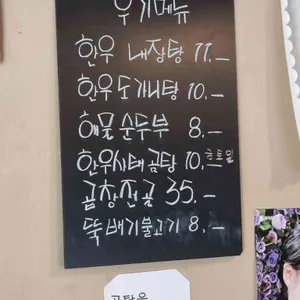 우기메뉴
한우 내장탕 11.-
한우도가니탕 10.-
해물순두부 8.-
한우사태곰탕 10.-
곱창전골 35.-
뚝배기불고기 8.-